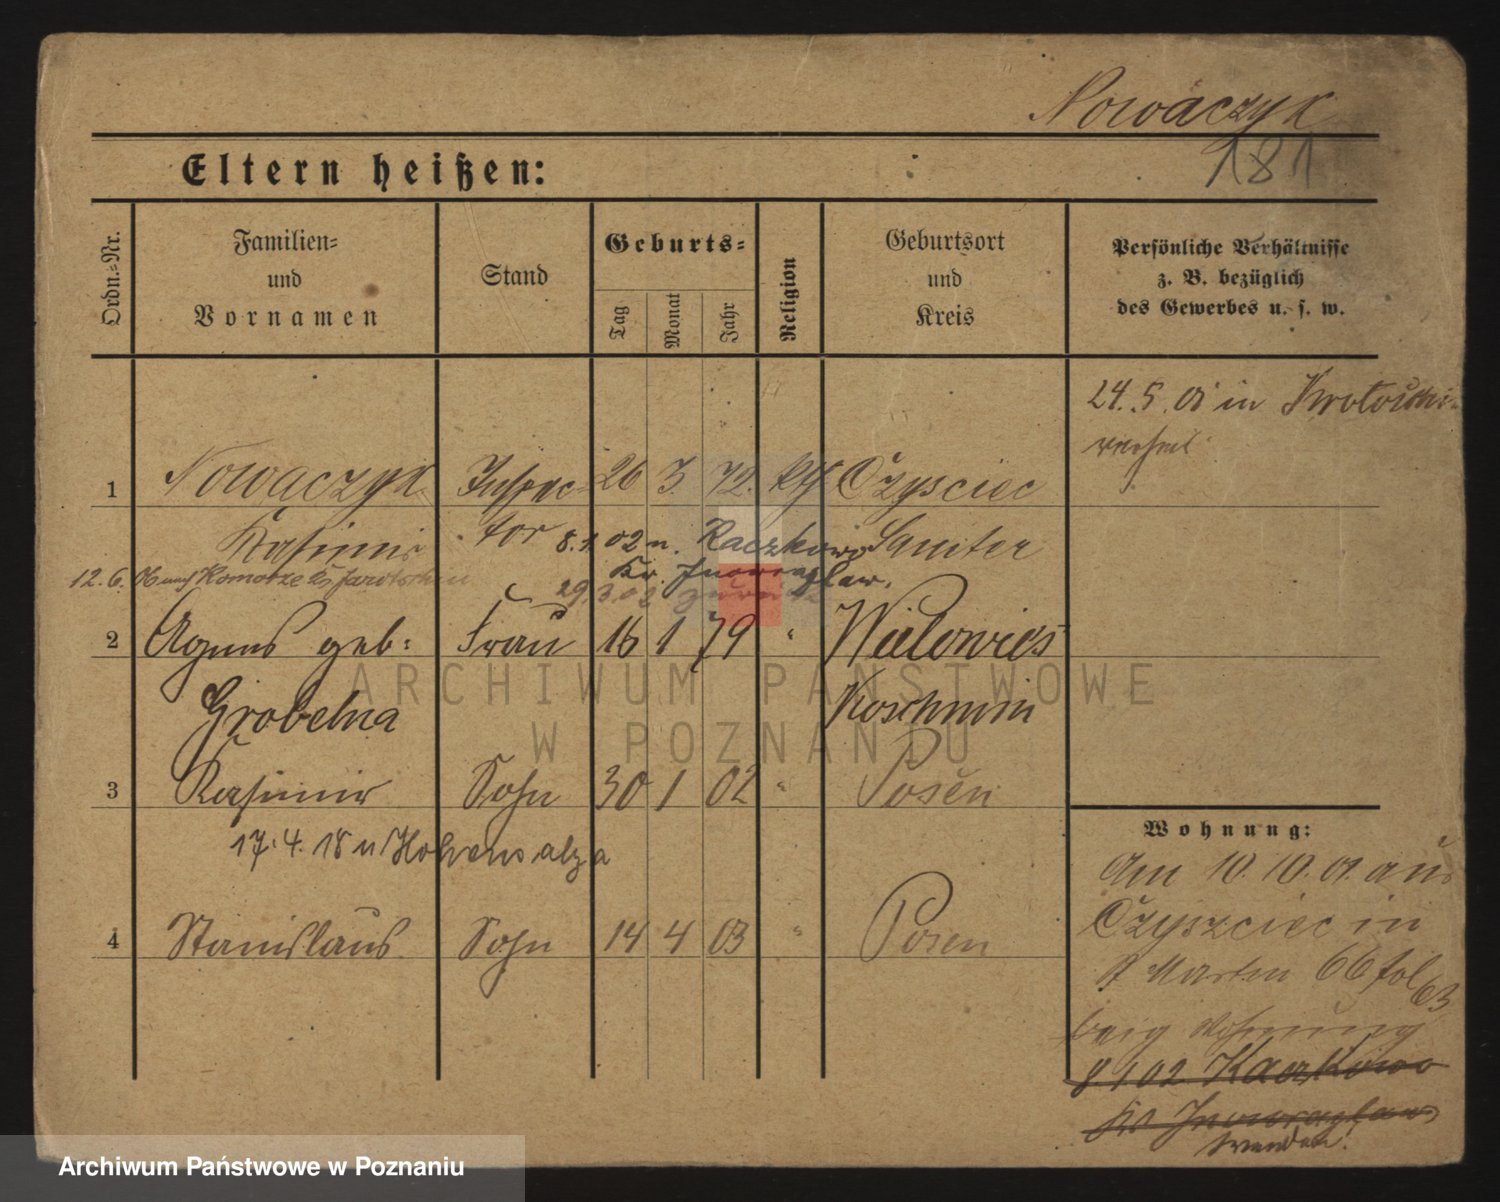 Nowaczyk
181
Eltern heißen:
Ordn.-Nr.
Familien-
und
Vornamen
Stand
Geburts-
Tag
Monat
Jahr
Religion
Geburtsort
und
Kreis
Persönliche Verhältnisse
z. B. bezüglich
des Gewerbes u. s. w.
24. 5. 01 in
1 Nowaczyk Inspec- 26 3. 72. kth Czysciec
Kasimir tor 8.1.02 n. Raczkowo Samter
12. 6. 06 nach Komorze Kr Jarotschin Kr. Inowrazlaw.
29.3.02
2 Agnes geb: Frau 16 1 79 " Wielowies
Grobelna Koschmin
3 Kasimir Sohn 30 1 02 " Posen
17. 4. 18 n Hohensalza
4 Stanislaus. Sohn 14 4 03 " Posen
Wohnung:
Am 10. 10. 01. aus
Czyszciec in
St Martin 66 fol 63
Wohnung
8 1 02 Raczkowo
Kr Inowrazlaw
wenden!
ARCHIWUM PAŃSTWOWE
W POZNANIU
Archiwum Państwowe w Poznaniu